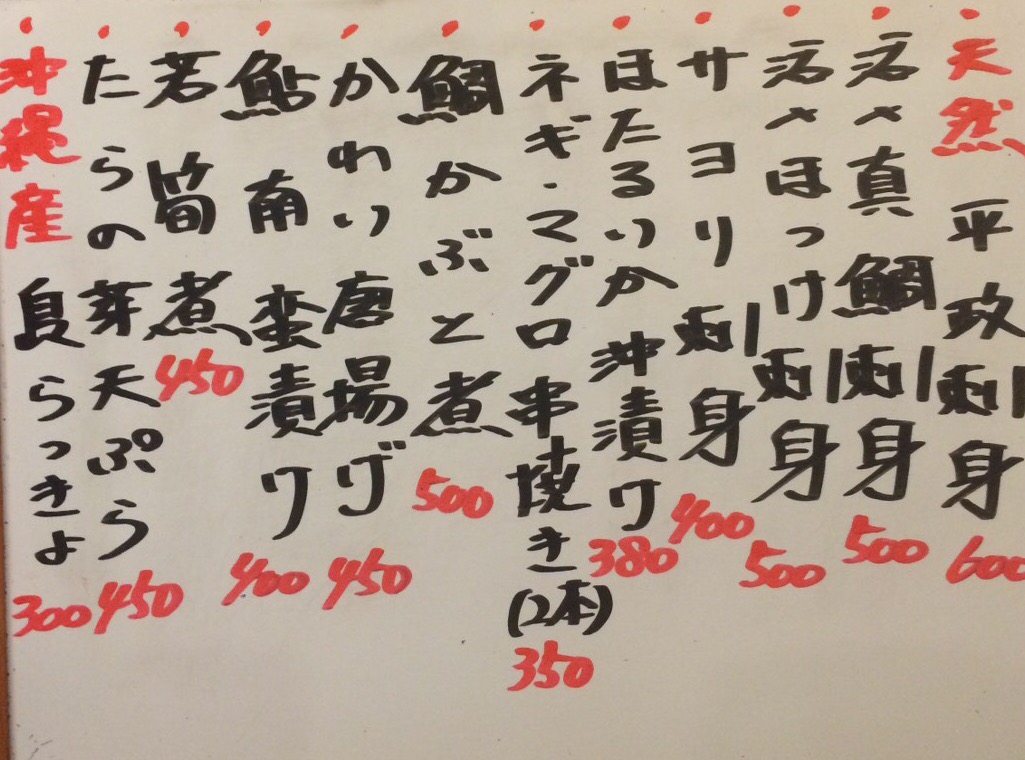 天然 平政刺身 600
活〆真鯛刺身 500
活〆ほっけ刺身 500
サヨリ刺身 400
ほたるいか沖漬け 380
ネギ・マグロ串焼き(2本) 350
鯛かぶと煮 500
かわい唐揚げ 450
鮎南蛮漬け 400
若筍煮 450
たらの芽天ぷら 450
沖縄産 島らっきょ 300